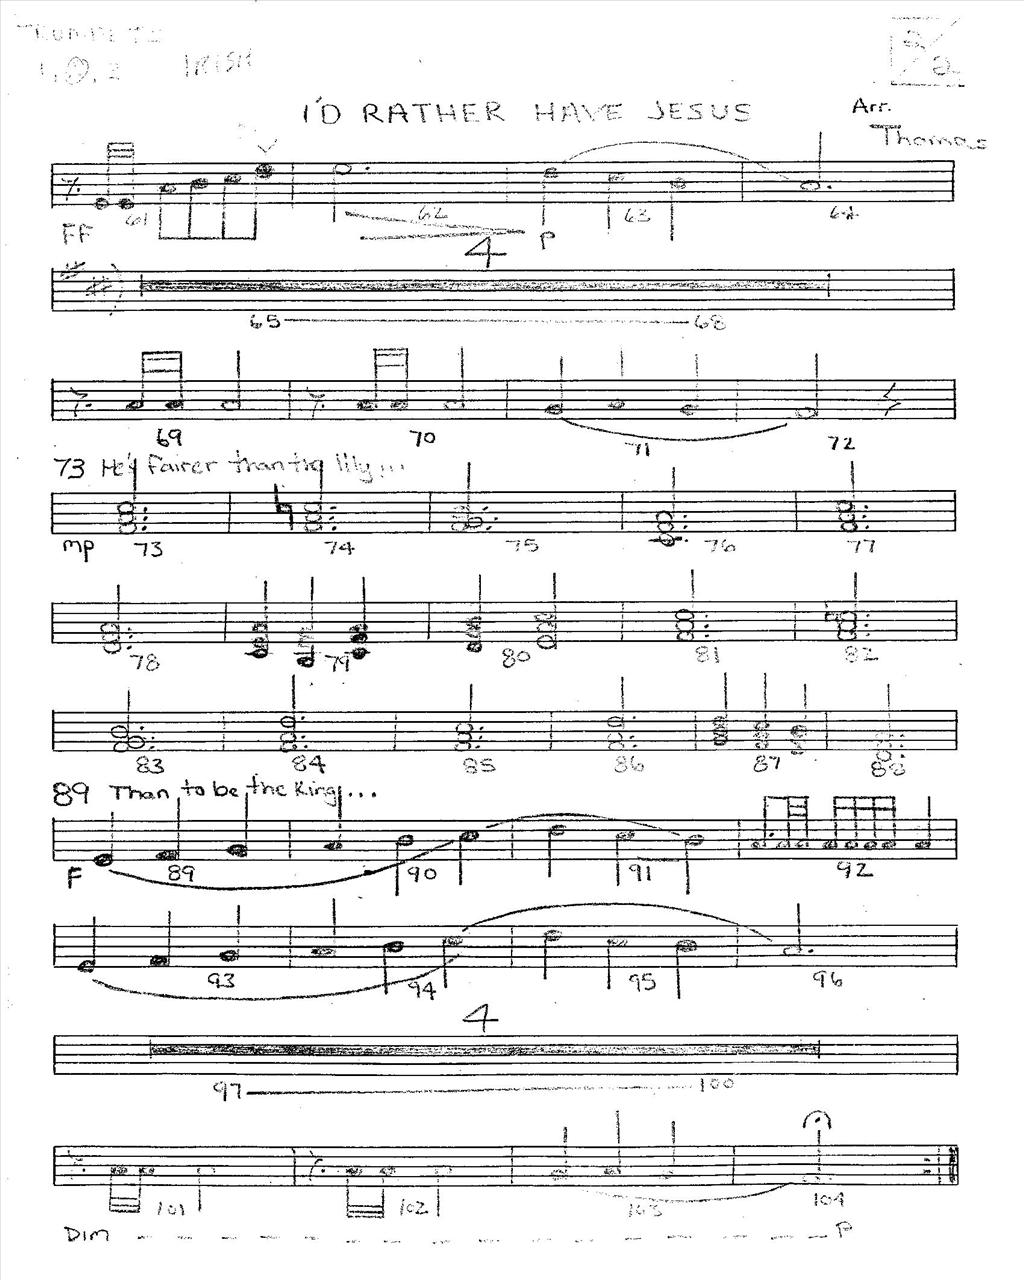 TRUMPETS 2/2
1, 2, 3 IRISH
I'D RATHER HAVE JESUS Arr. Thomas
61 62 63 64
FF P
4
65 68
69 70 71 72
73 He's fairer than the lily...
mp 73 74 75 76 77
78 79 80 81 82
83 84 85 86 87 88
89 Than to be the King...
F 89 90 91 92
93 94 95 96
4
97 100
101 102 103 104
DIM P